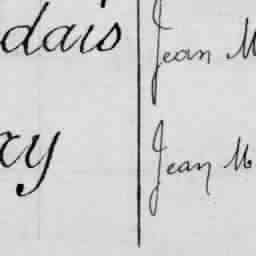 dais Jean M
xy Jean M